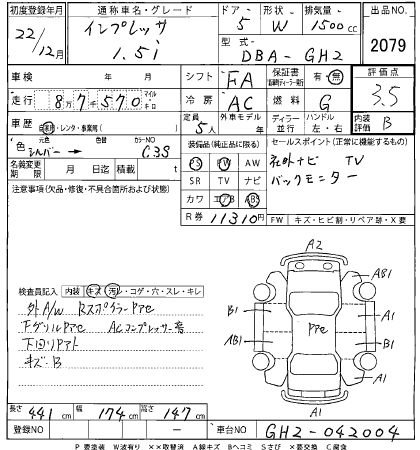 初度登録年月 通称車名・グレード ドア 形状 排気量 出品NO.
22/12月 インプレッサ 1.5i 5 W 1500cc 2079
型式 DBA-GH2
車検 年 月 シフト FA 保証書 有・無 評価点
走行 87570 マイル キロ 冷房 AC 燃料 G 3.5
車歴 自家用・レンタ・事業用( ) 定員 5人 外車モデル 年 ディーラー 並行 ハンドル 左・右 内装評価 B
色 元色 シルバー → 色替 カラーNO C3S
装備品(純正品に限る) セールスポイント(正常に機能するもの)
PS PW AW 社外ナビ TV
名義変更期限 月 日迄 積載 t SR TV ナビ バックモニター
注意事項(欠品・修復・不具合箇所および状態) カワ エアB ABS
R券 11310円 FW キズ・ヒビ割・リペア跡・X要
A2
AB1
A1
B1
AB1
PAC
A1
B1
A1
A1
検査員記入 内装 キズ・汚レ・コゲ・穴・スレ・キレ
外A/W RスポイラーPAC
FグリルPAC ACコンプレッサー音
下回リサビト
キズ・B
長さ 441cm 幅 174cm 高さ 147cm
登録NO ー 車台NO GH2-042004
P 要塗装 W波有り ××取替済 A線キズ Bヘコミ Sさび ×要交換 C腐食